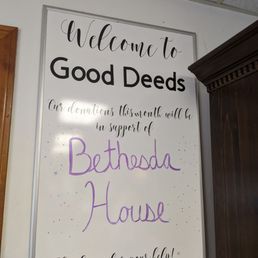 Welcome to
Good Deeds
Our donations this month will be
in support of
Bethesda
House
your help!